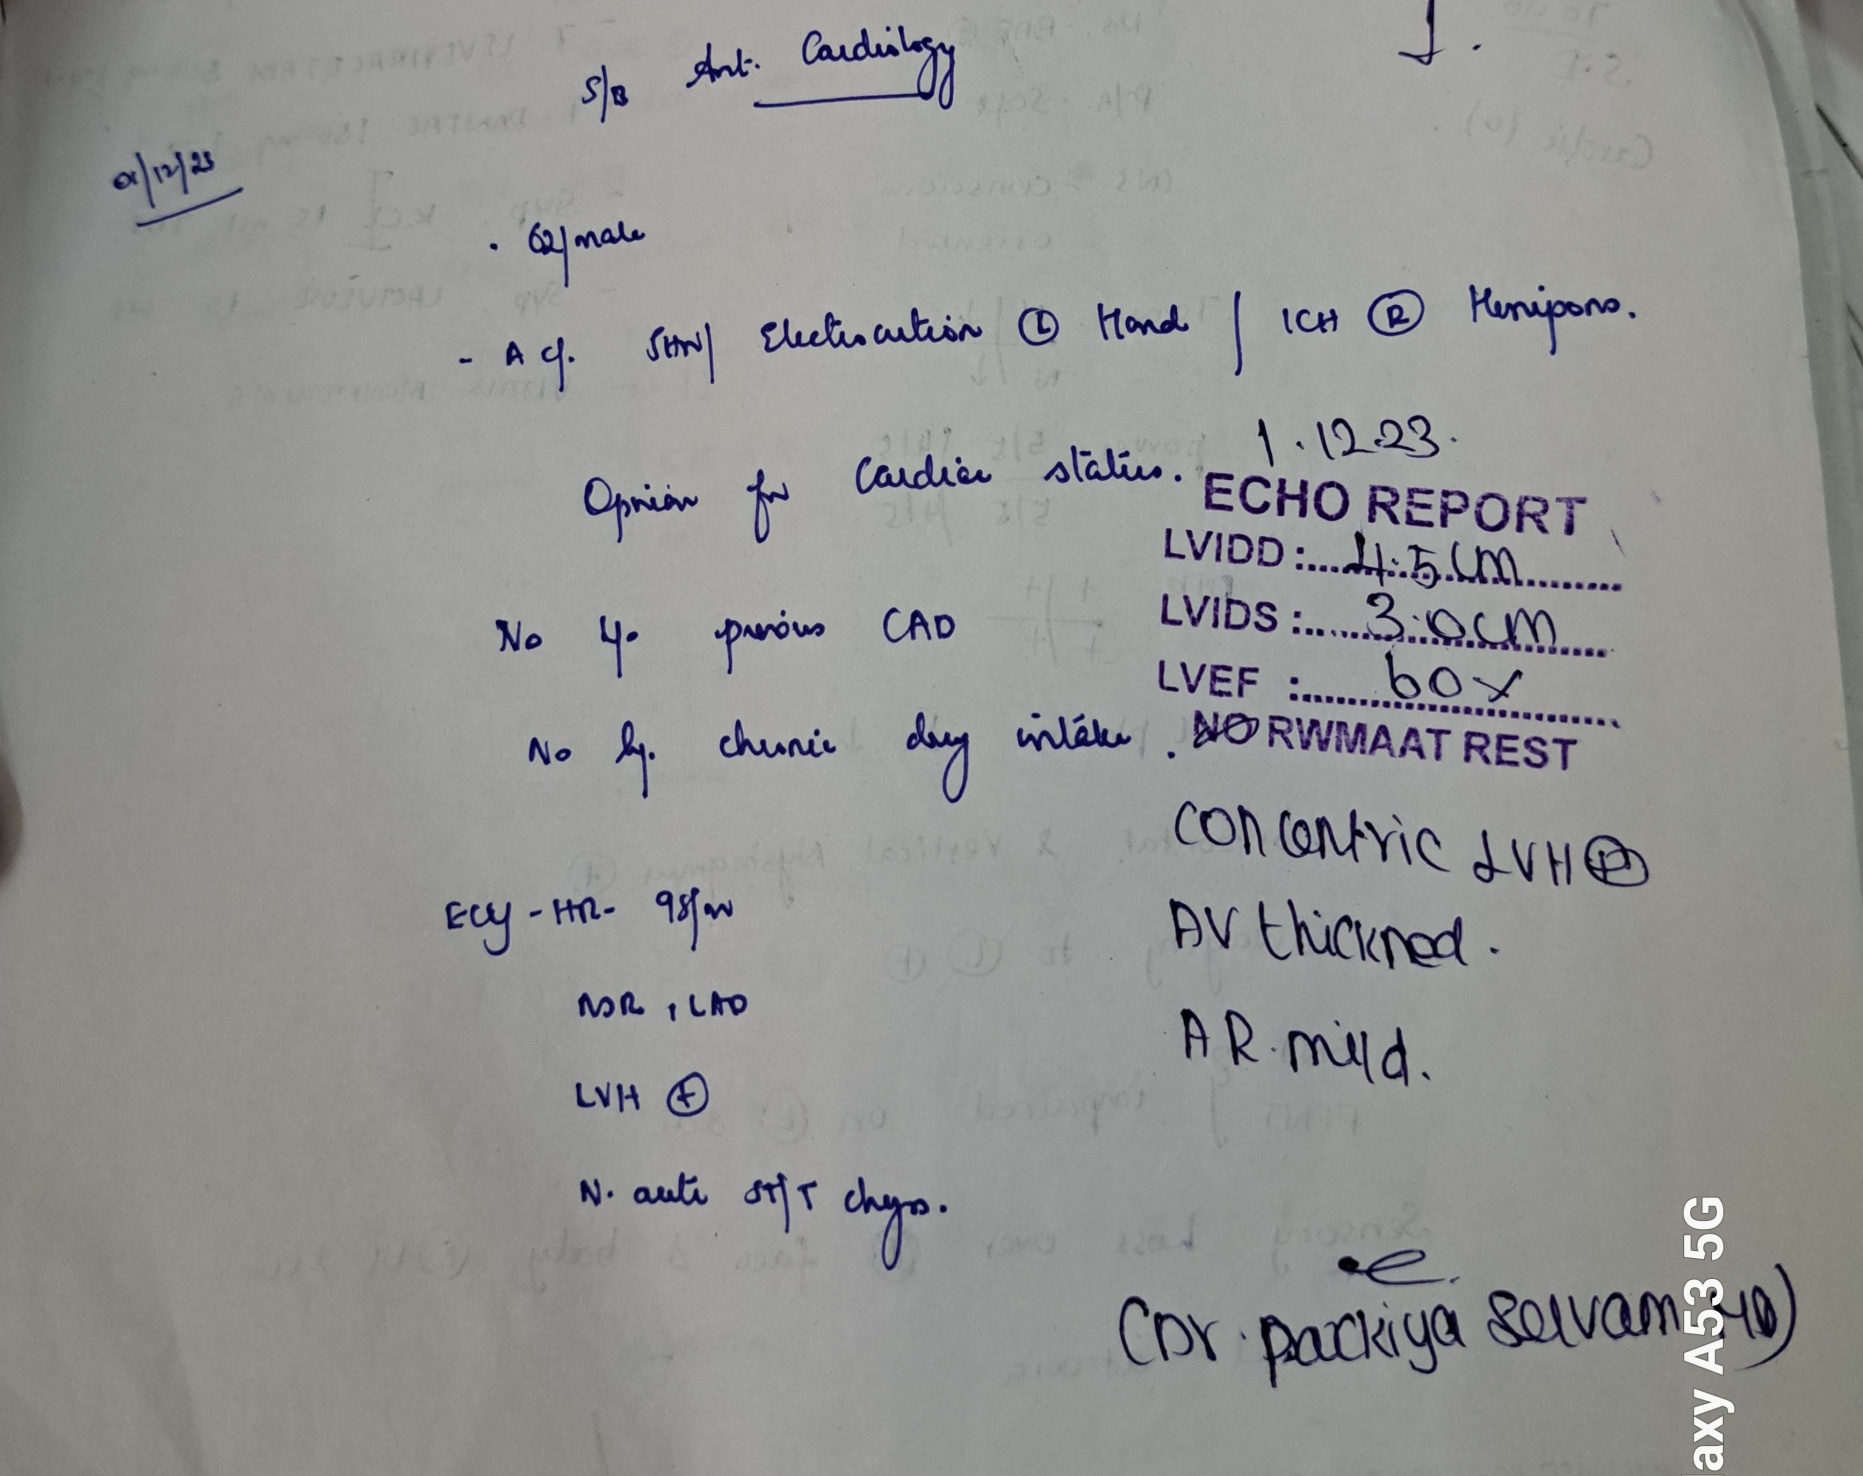 S/B Ast. Cardiology
01/12/23
. 62/male
- A c/. SHW/ Electrocution Ⓛ Hand / ICH Ⓡ Hemipons.
Opnion for Cardiac status.
No h/o previous CAD
No h/. chronic drug intake.
ECG - HR - 98/m
NSR, LAD
LVH ⊕
N. acute ST/T chgs.
1.12.23.
ECHO REPORT
LVIDD : 4.5 cm
LVIDS : 3.0cm
LVEF : 60%
NO RWMAAT REST
concentric LVH ⊕
AV thickned.
AR. mild.
(Dr. packiya Selvam MD)
axy A53 5G